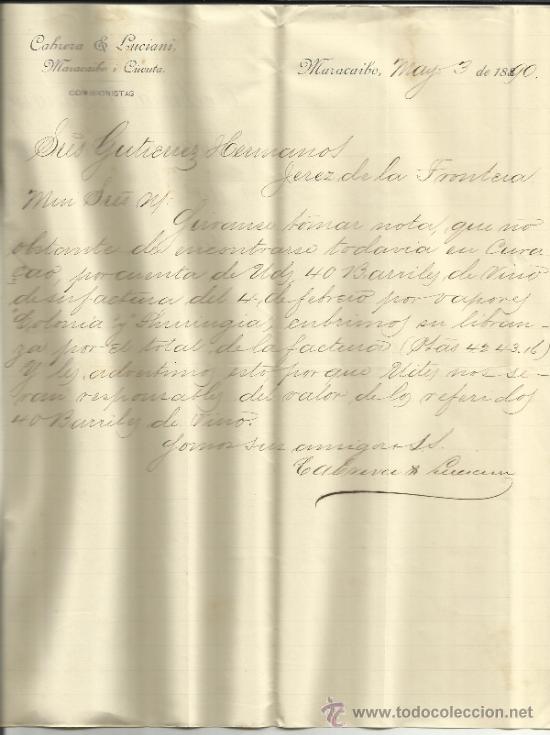 Cabrera & Luciani,
Maracaibo i Cúcuta.
COMISIONISTAS
Maracaibo, May. 3 de 1890.
Srēs Gutierrez Hermanos
Jerez de la Frontera
Muy Srēs Ns:
Sirvanse tomar nota, que no
obstante de encontrarse todavia en Cura-
çao por cuenta de Uds 40 Barriles de Vino
de su factura del 4 de febrero por vapores
"Colonia" y "Thuringia", cubrimos su libran-
za por el total de la factura (Ptas 4243.16)
Y les advertimos esto por que Udes nos se-
ran responsables del valor de los referidos
40 Barriles de Vino.
Somos sus amigos y SS.
Cabrera & Luciani
todocoleccion
www.todocoleccion.net